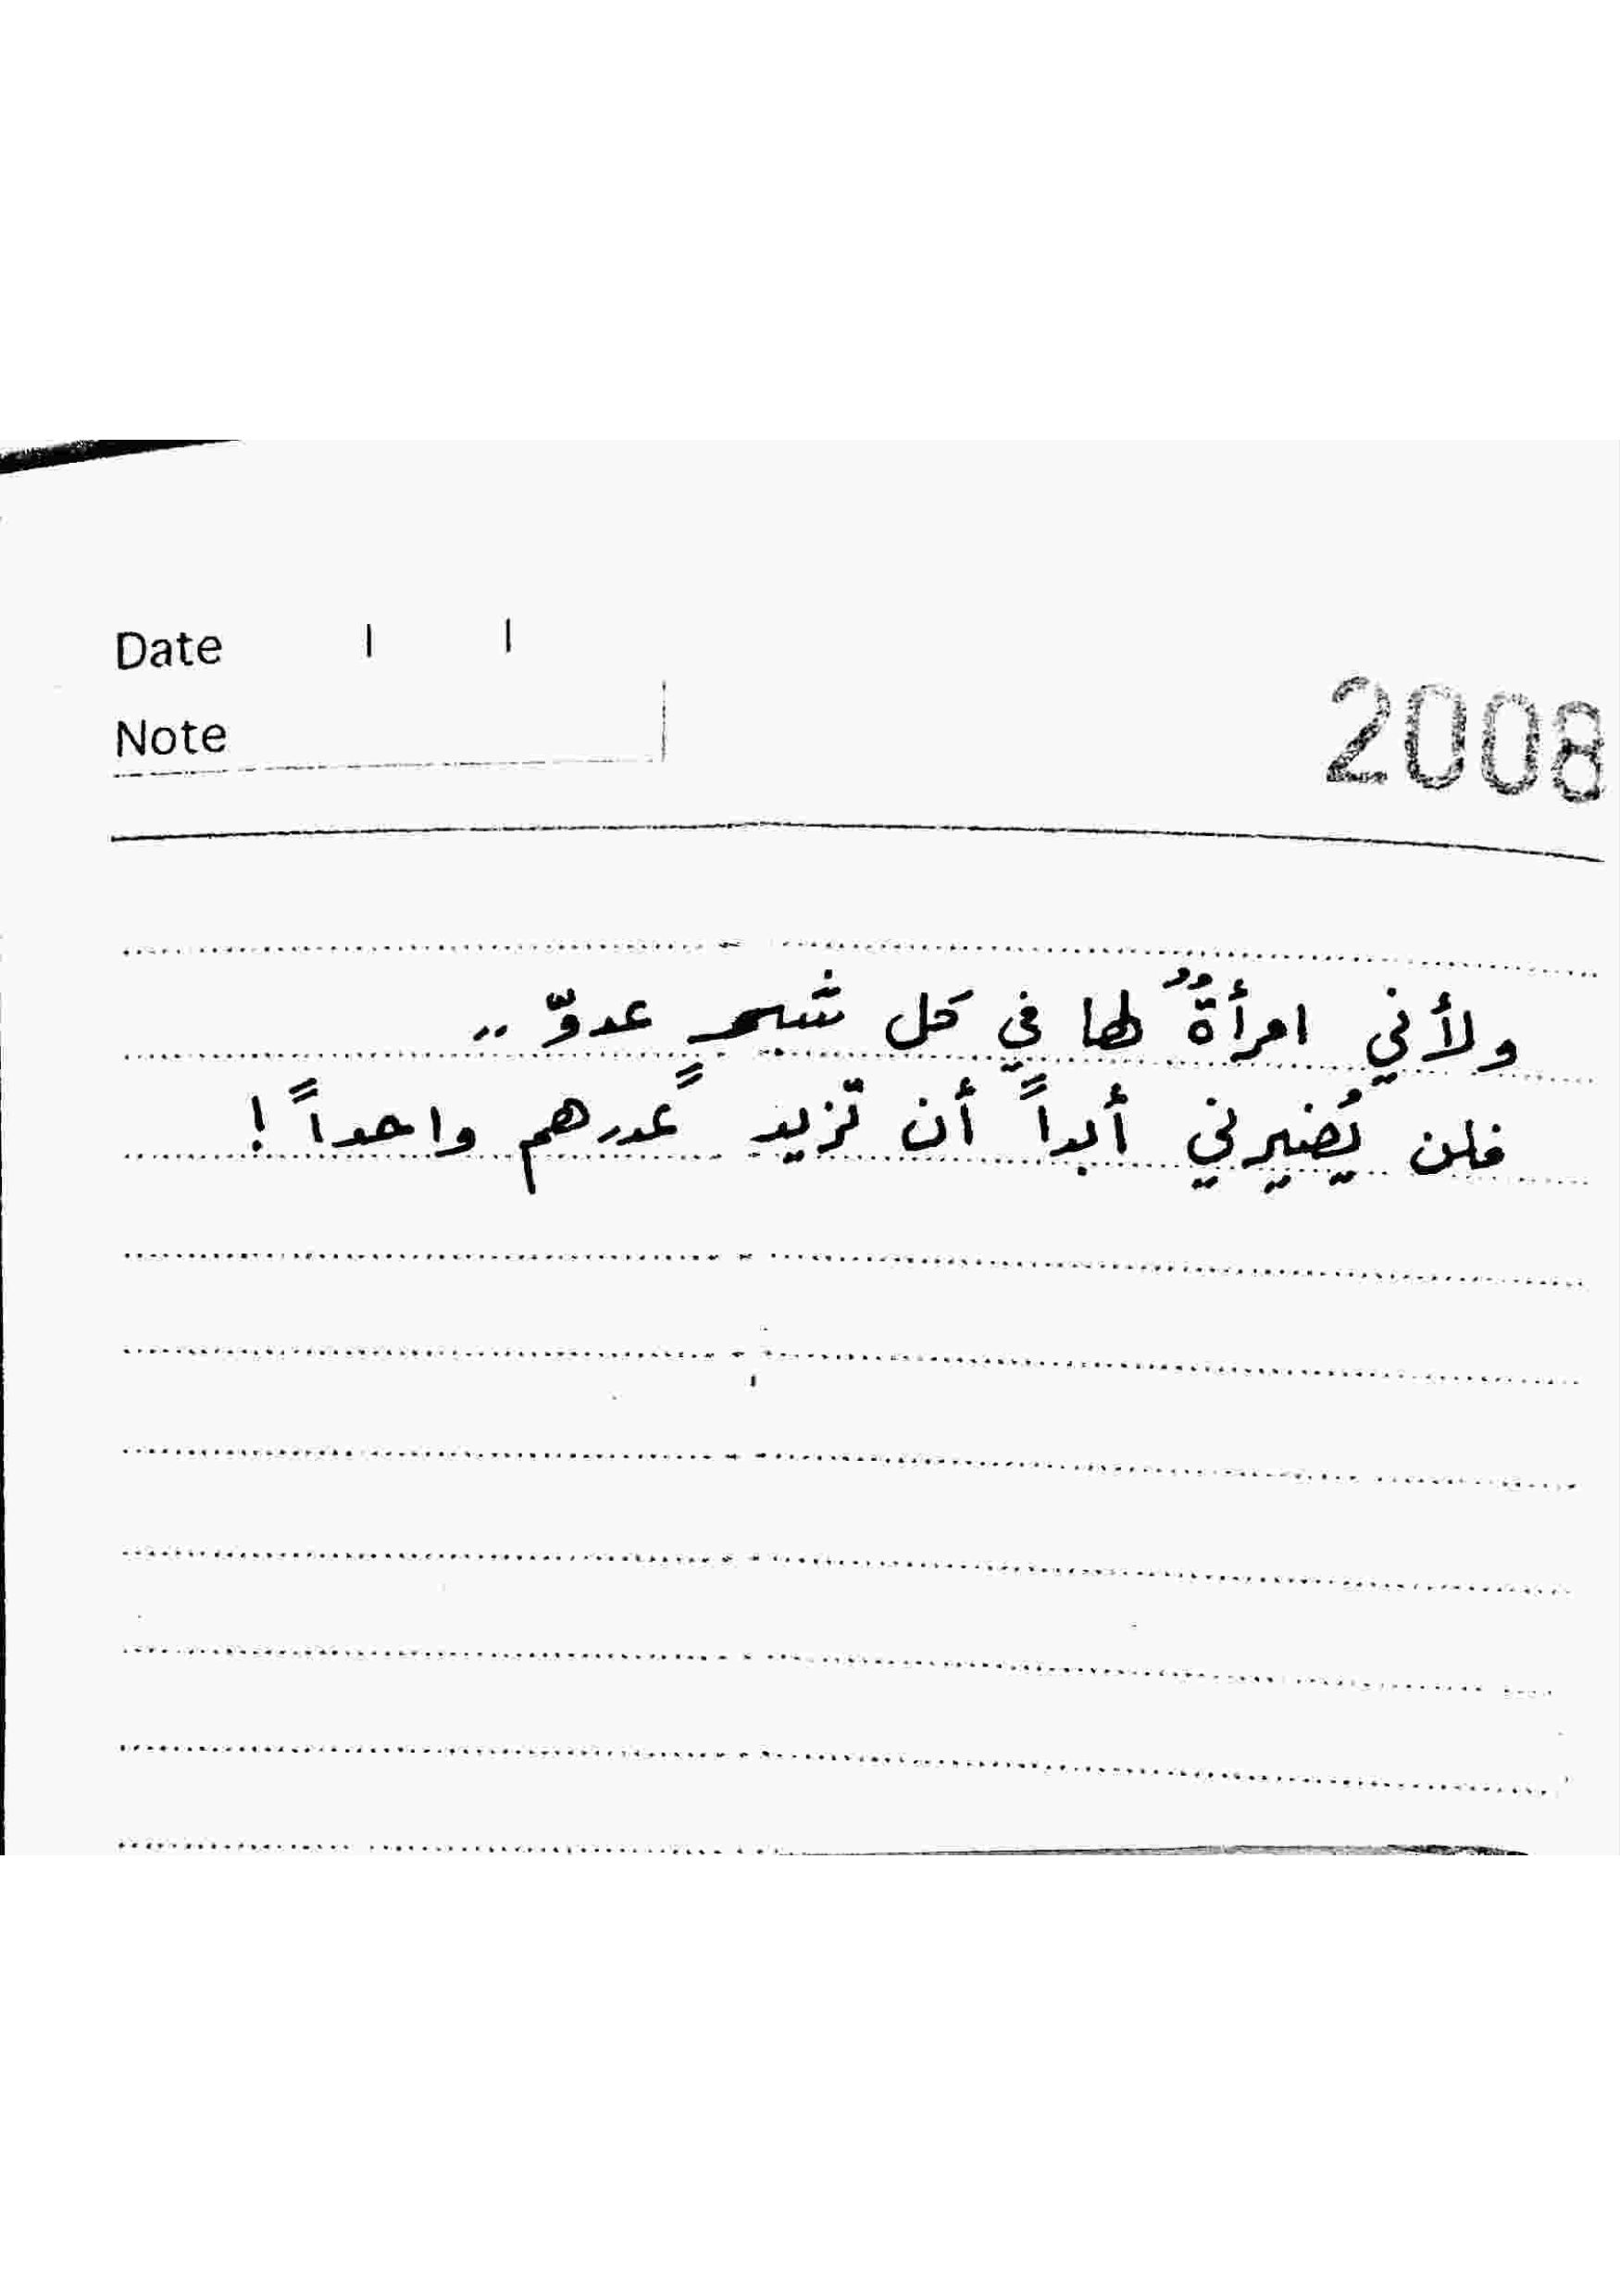 Date / /
Note
2008
ولأني امرأةٌ لها في كل شبرٍ عدوّ ..
فلن يُضيرني أبداً أن تزيد عددهم واحداً !